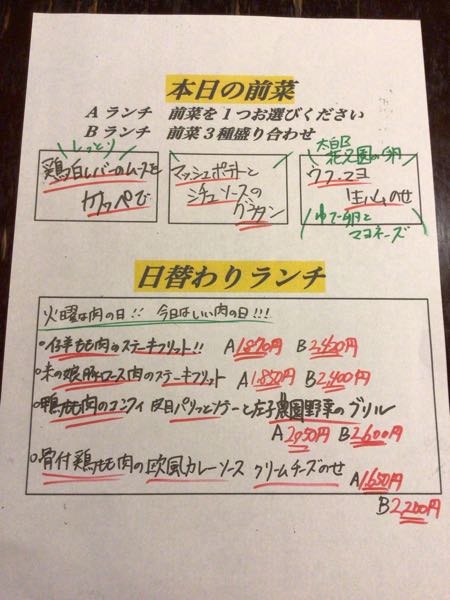 本日の前菜
Aランチ 前菜を1つお選びください
Bランチ 前菜3種盛り合わせ
しっとり
鶏白レバーのムースを
カナッペで
マッシュポテトと
シチューソースの
グラタン
ウフ・マヨ
生ハムのせ
ゆで卵と
マヨネーズ
日替わりランチ
火曜は肉の日!! 今日はいい肉の日!!!
仔羊もも肉のステーキフリット!! A1,870円 B2,420円
米の娘豚ロース肉のステーキフリット A1,850円 B2,400円
鴨もも肉のコンフィ 皮目パリッとソテーと庄子農園野菜のグリル
A2,050円 B2,600円
骨付鶏もも肉の欧風カレーソース クリームチーズのせ A1,650円
B2,200円